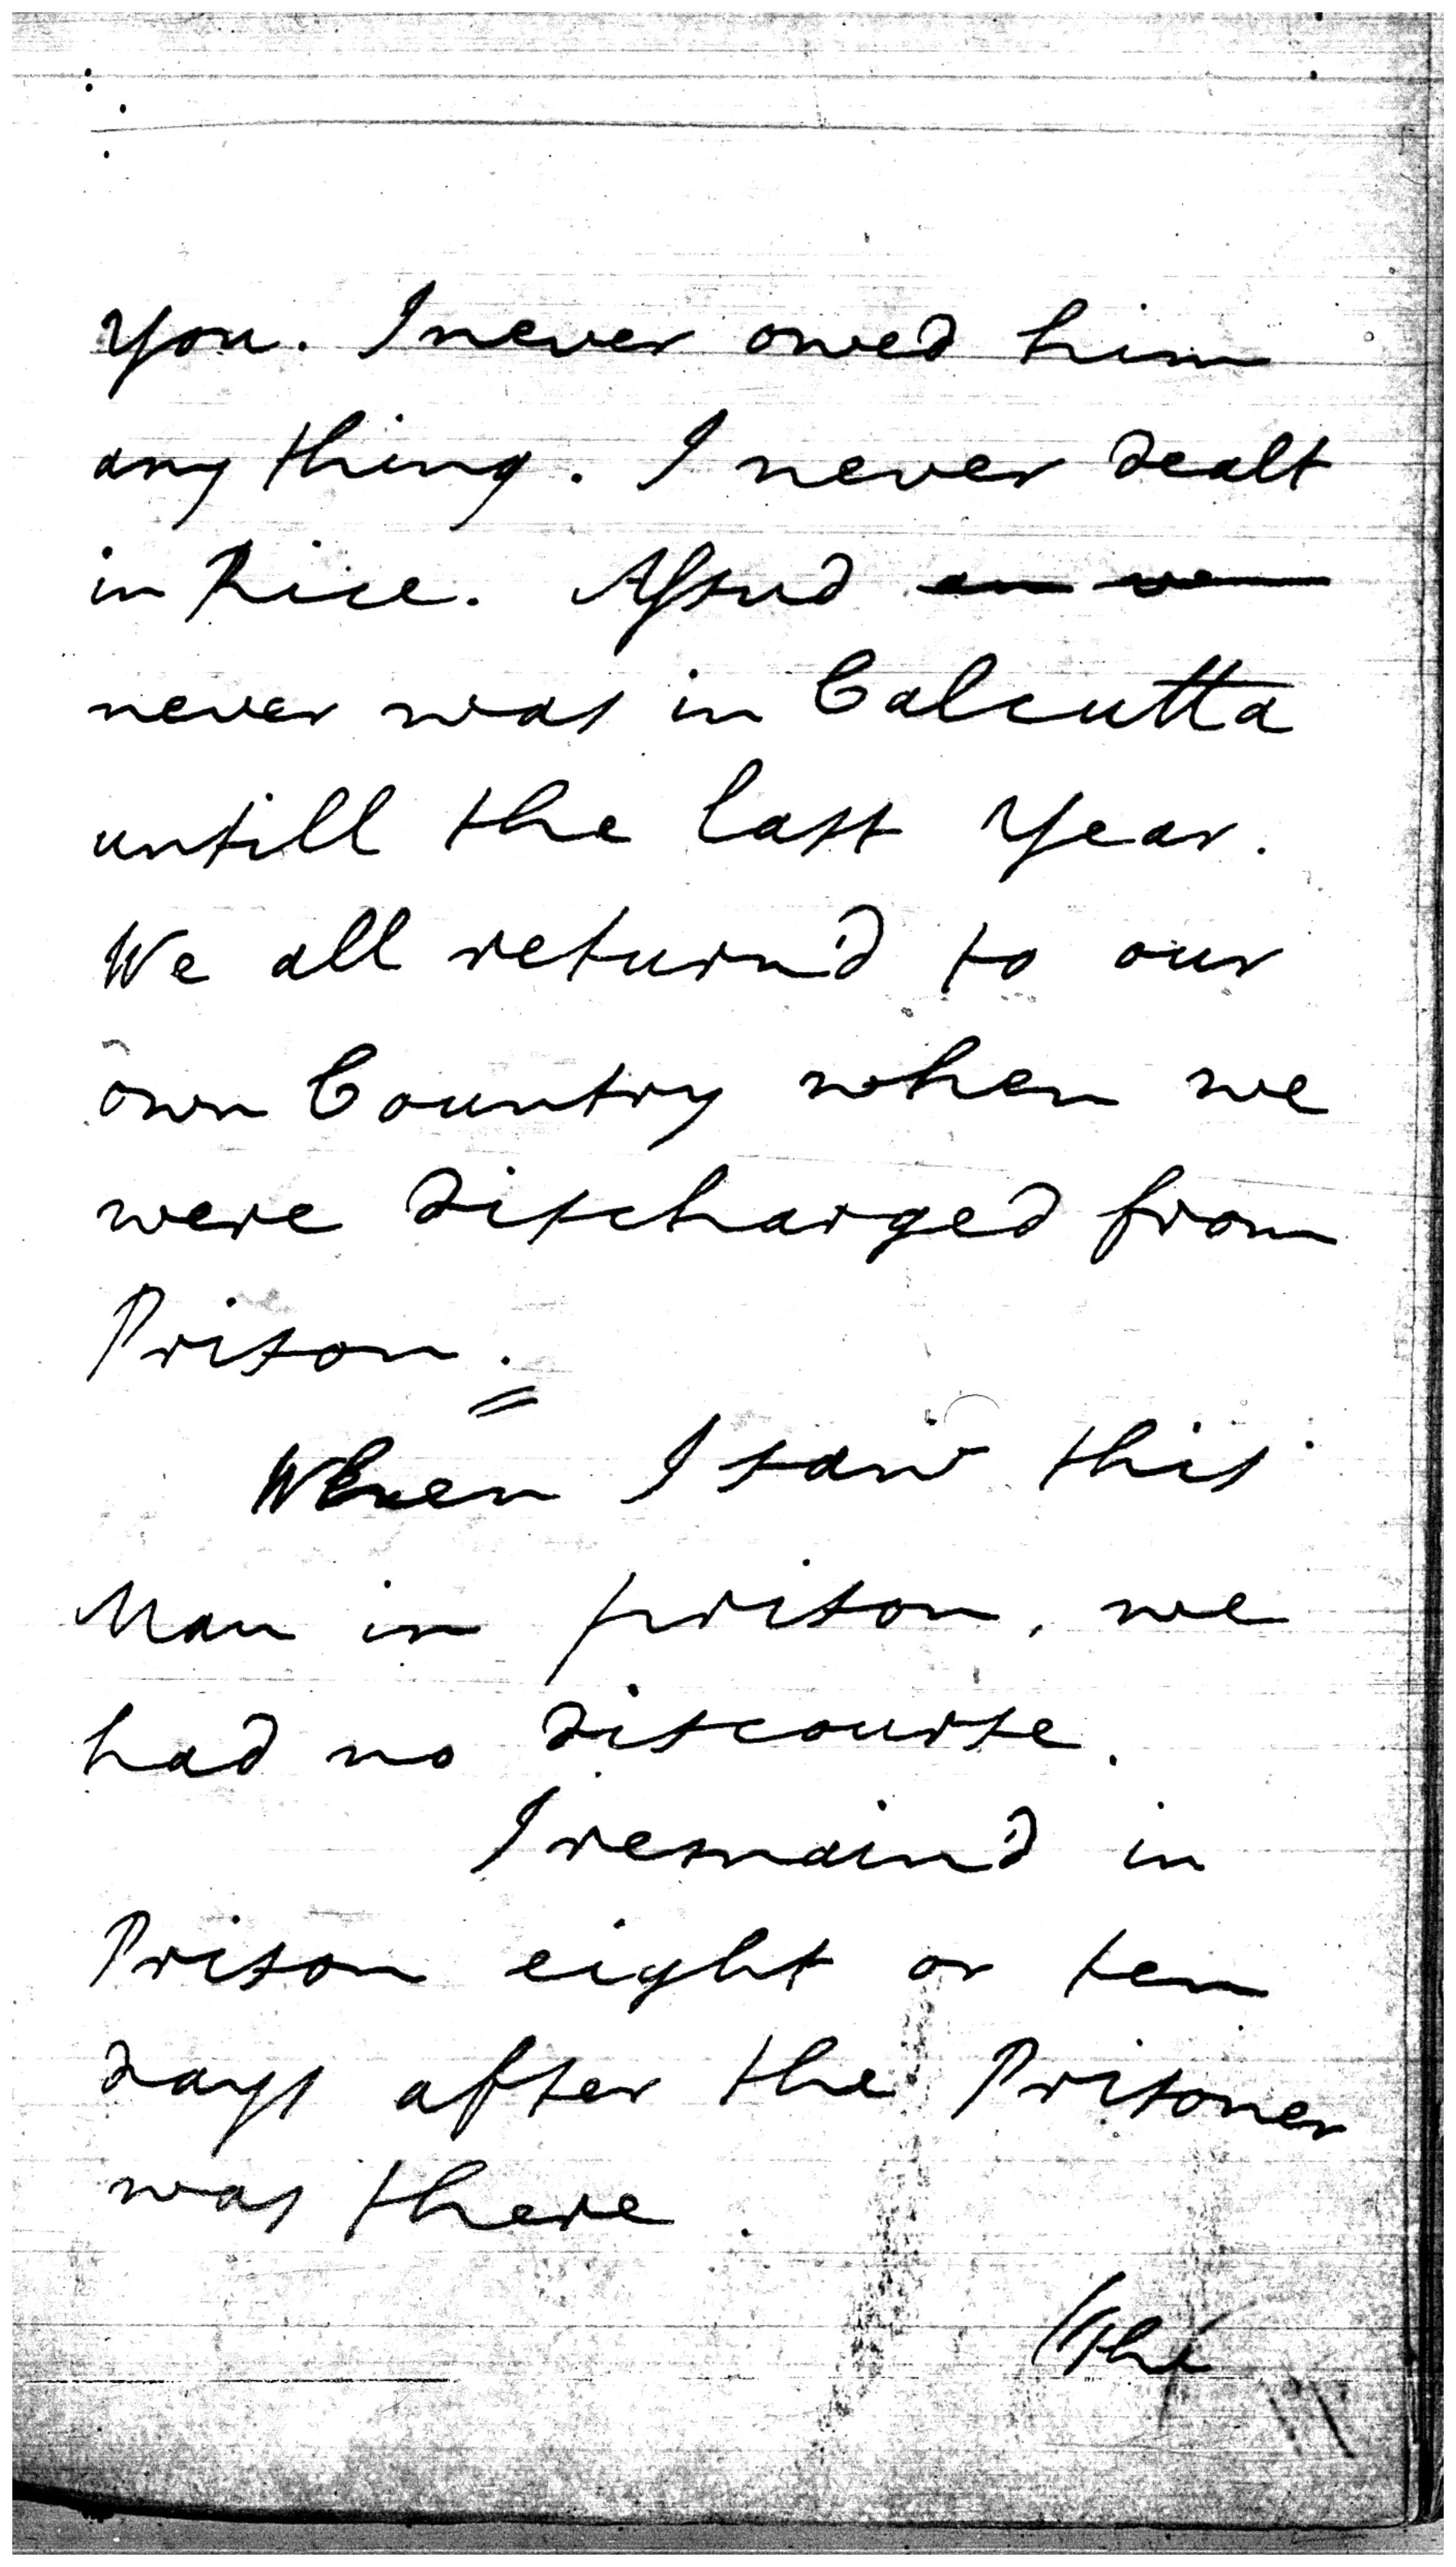 you. I never owed him
any thing. I never dealt
in Rice. Assud
never was in Calcutta
untill the last Year.
We all return'd to our
own Country when we
were discharged from
Prison.
When I saw this
Man in prison, we
had no discourse.
I remain'd in
Prison eight or ten
days after the Prisoner
was there.
(The